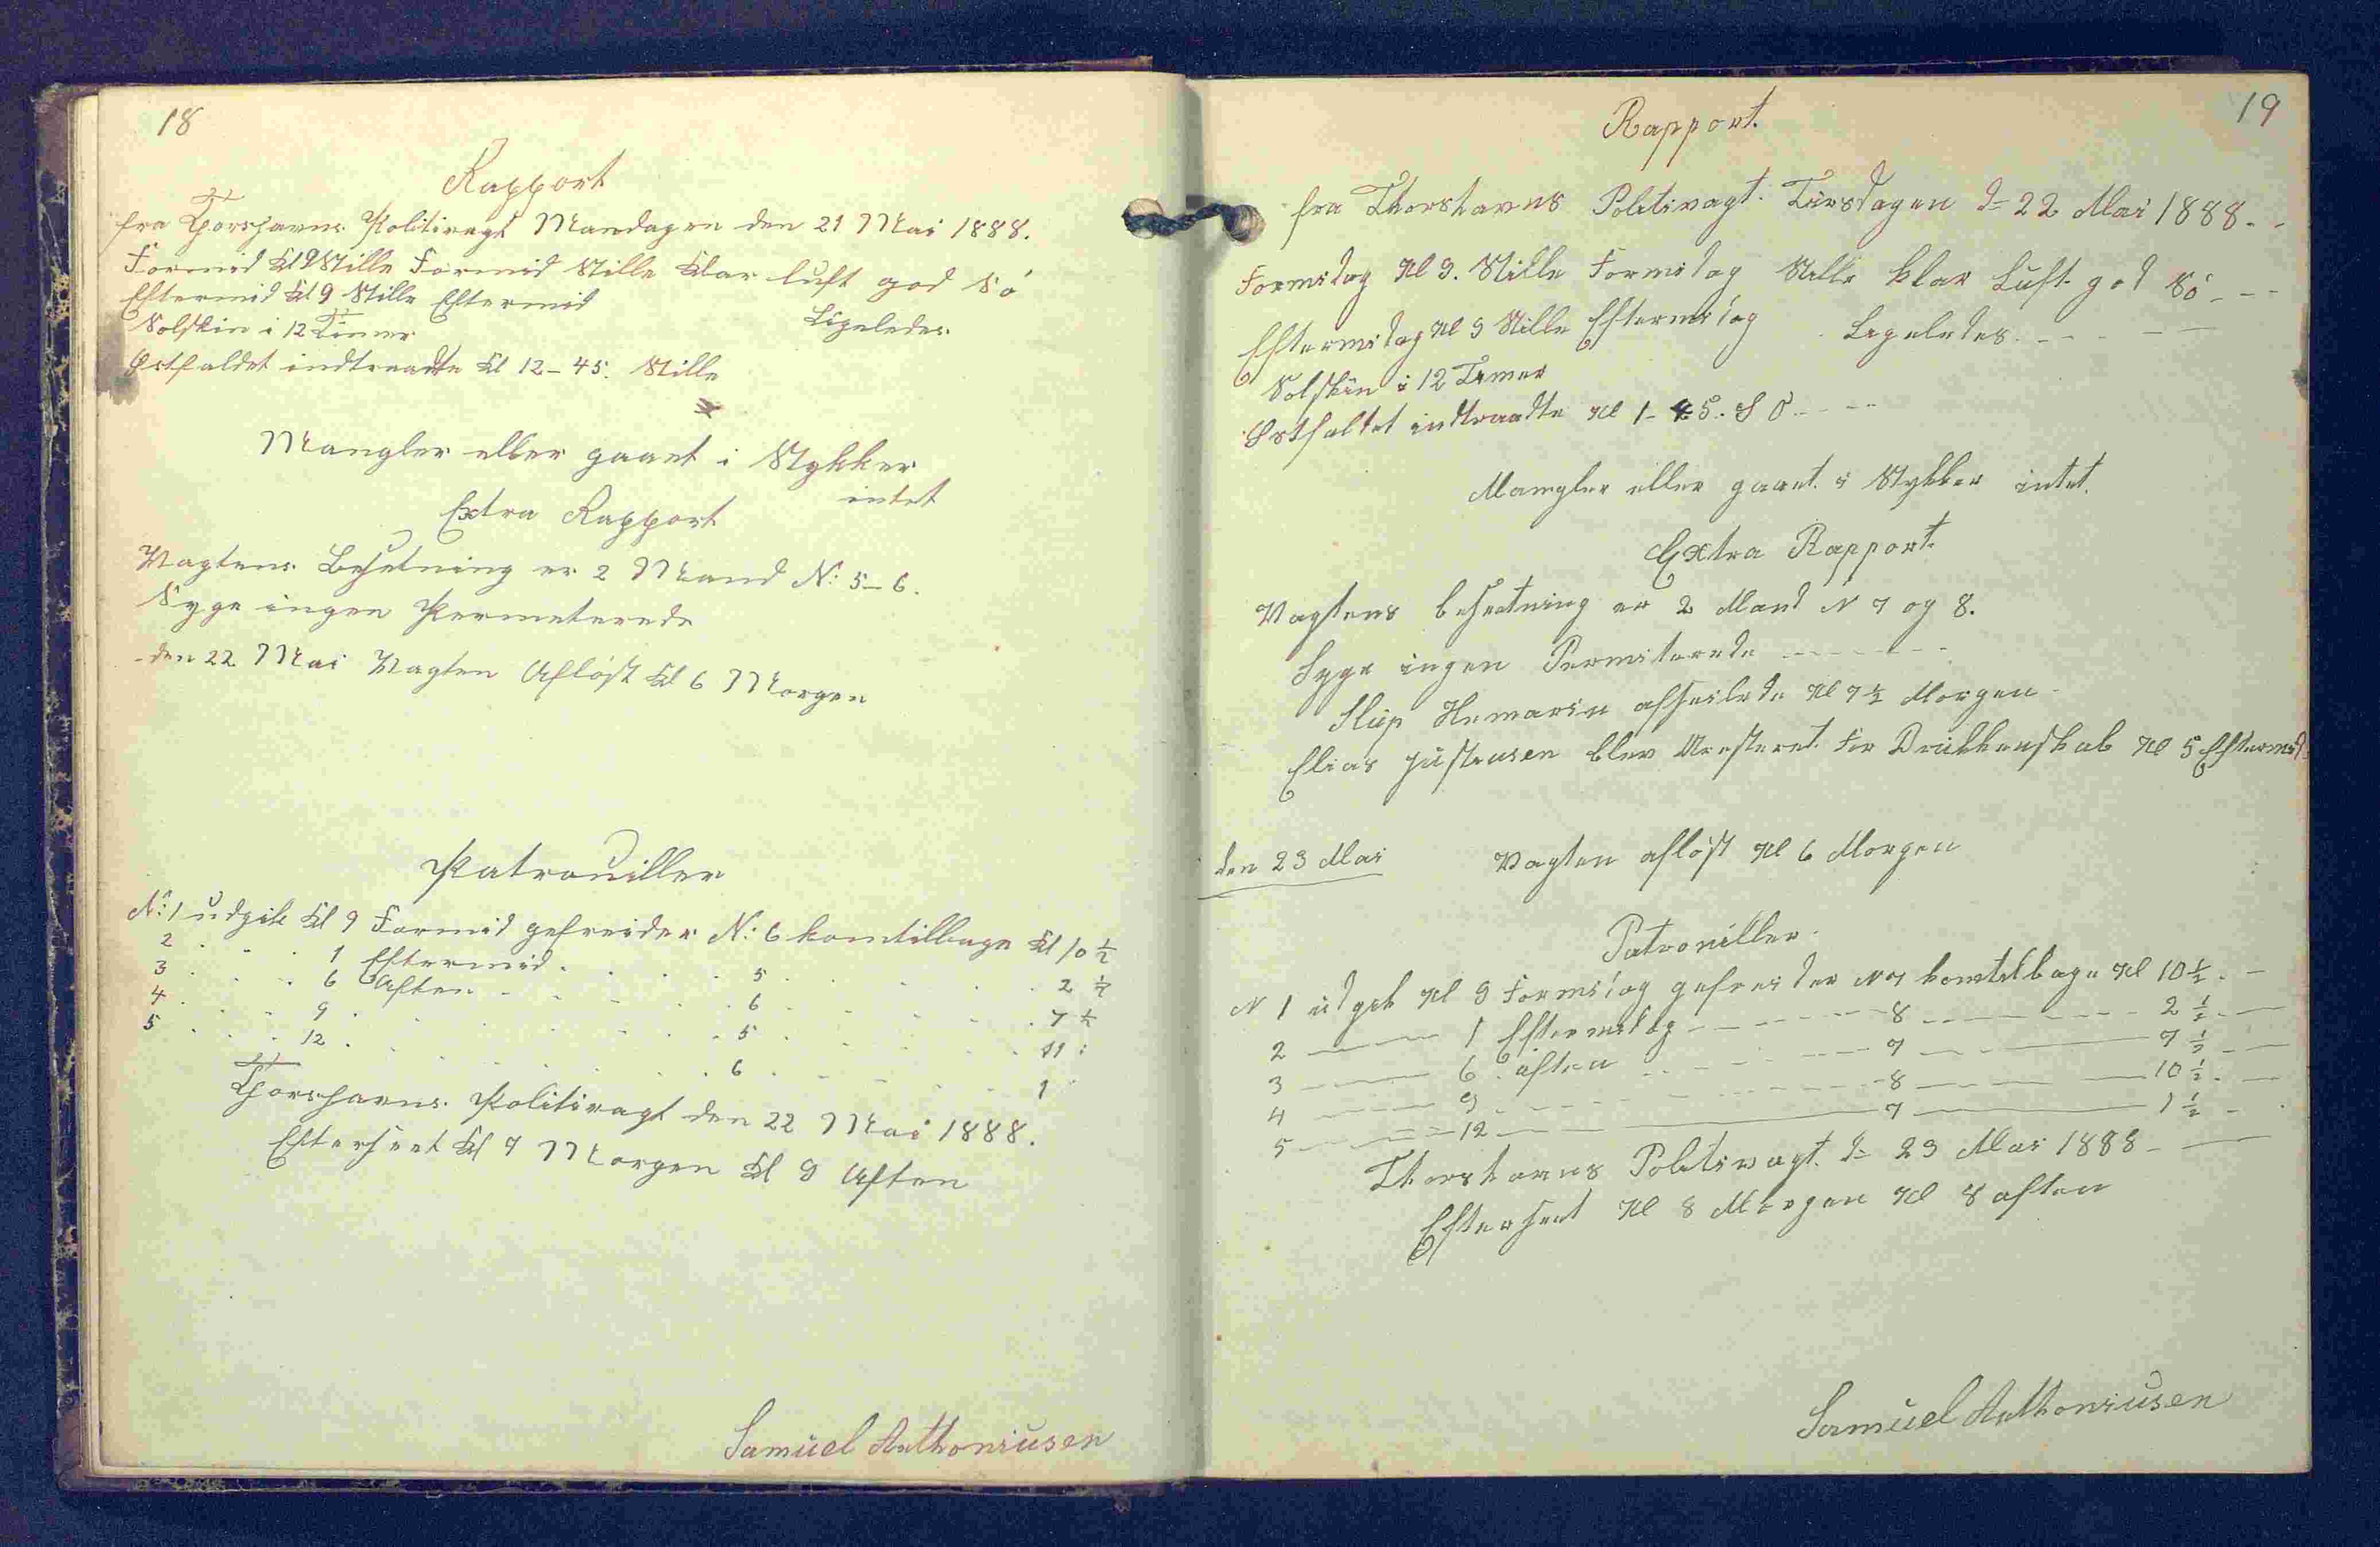 18
Rapport
fra Thorshavns Politivagt Mandagen den 21 Mai 1888.
Formid Kl 9 Stille Formid Stille Klar luft god Sö
Eftermid Kl 9 Stille Eftermid Ligeledes
Solskin i 12 Timer
Østfaldet indtraadte Kl 12-45. Stille
Mangler eller gaaet i Stykker
intet
Extra Rapport
Vagtens Besetning er 2 Mand N: 5-6.
Syge ingen Permeterede
den 22 Mai Vagten Aflöst Kl 6 Morgen
Patrouiller
N: 1 udgik Kl 9 Formid gefreider N: 6 komtilbage Kl 10 1/2
2 . . . 1 Eftermid . . . 5 . . . 2 1/2
3 . . . 6 Aften . . . 6 . . . 7 1/2
4 . . . 9 . . . 5 . . . 11
5 . . . 12 . . . 6 . . . 1
Thorshavns Politivagt den 22 Mai 1888.
Efterseet Kl 7 Morgen Kl 9 Aften
Samuel Anthoniusen
19
Rapport.
fra Thorshavns Politivagt. Tirsdagen d= 22 Mai 1888.
Formidag Kl 9. Stille Formidag Stille klar Luft god Sö
Eftermidag Kl 9 Stille Eftermidag Ligeledes.
Solskin i 12 Timer
Østfaldet indtraadte Kl 1-45. S O
Mangler eller gaaet i Stykker intet.
Extra Rapport.
Vagtens besætning er 2 Mand N 7 og 8.
Syge ingen Permiterede
Slup Hemarin afseilede Kl 7 1/2 Morgen
Elias Justensen blev Aresteret for Drukkenskab Kl 5 Eftermid
den 23 Mai Vagten aflöst Kl 6 Morgen
Patrouiller.
N 1 udgik Kl 9 Formidag gefreider N 7 komtilbage Kl 10 1/2.
2 — 1 Eftermidag — 8 — 2 1/2
3 — 6 aften — 7 — 7 1/2
4 — 9 — 8 — 10 1/2
5 — 12 — 7 — 1 1/2
Thorshavns Politivagt. d= 23 Mai 1888
Efterseet Kl 8 Morgen Kl 8 aften
Samuel Anthoniusen